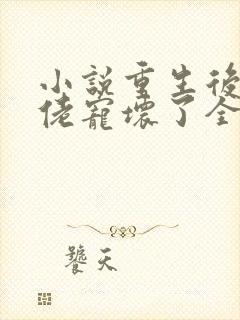 小說重生後
佬寵壞了全
饕天